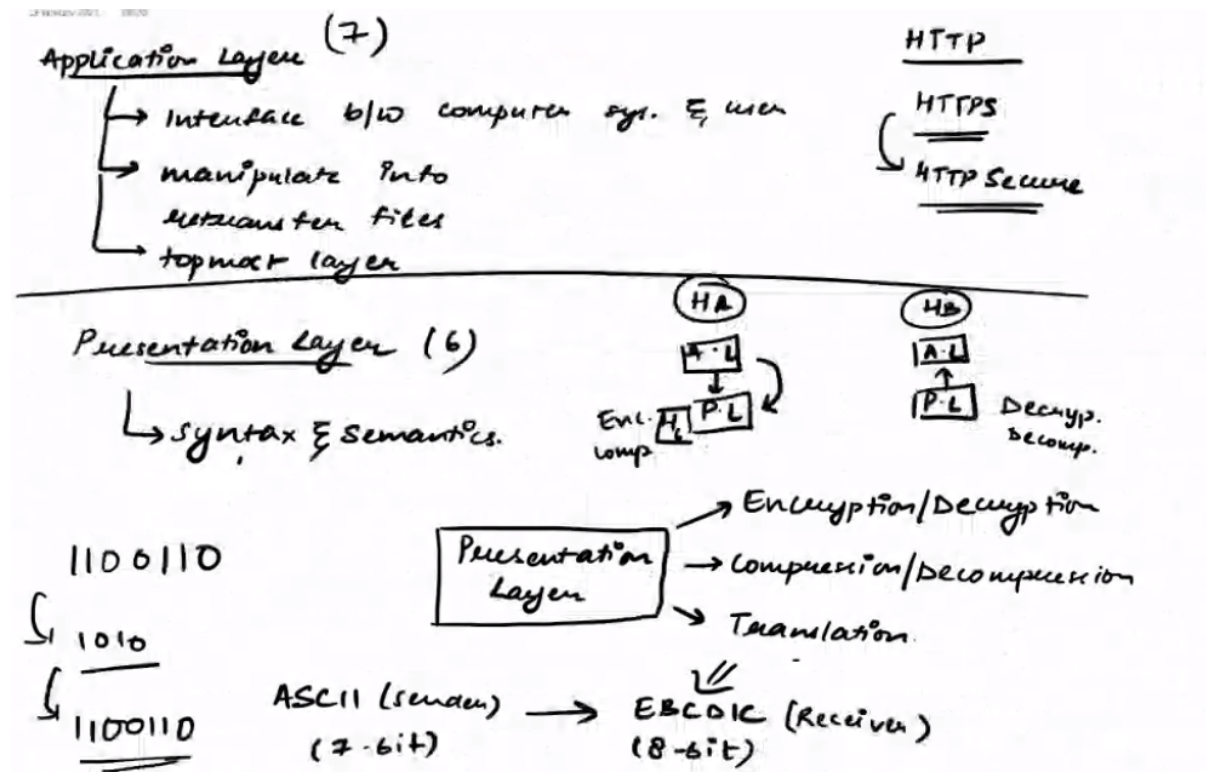 Application Layer (7)
Interface b/w computer sys. & user
manipulate info
retransfer files
topmost layer
HTTP
HTTPS
HTTP Secure
Presentation Layer (6)
syntax & semantics.
HA
A.L
P.L
Enc.
comp
HB
A.L
P.L
Decryp.
Decomp.
Presentation
Layer
Encryption/Decryption
Compression/Decompression
Translation
1100110
1010
1100110
ASCII (sender) → EBCDIC (Receiver)
(7-bit) (8-bit)